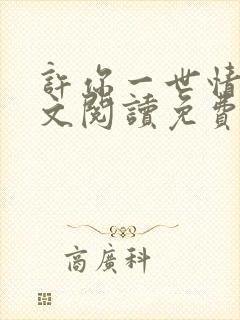 許你一世情
文閱讀免費
商廣科